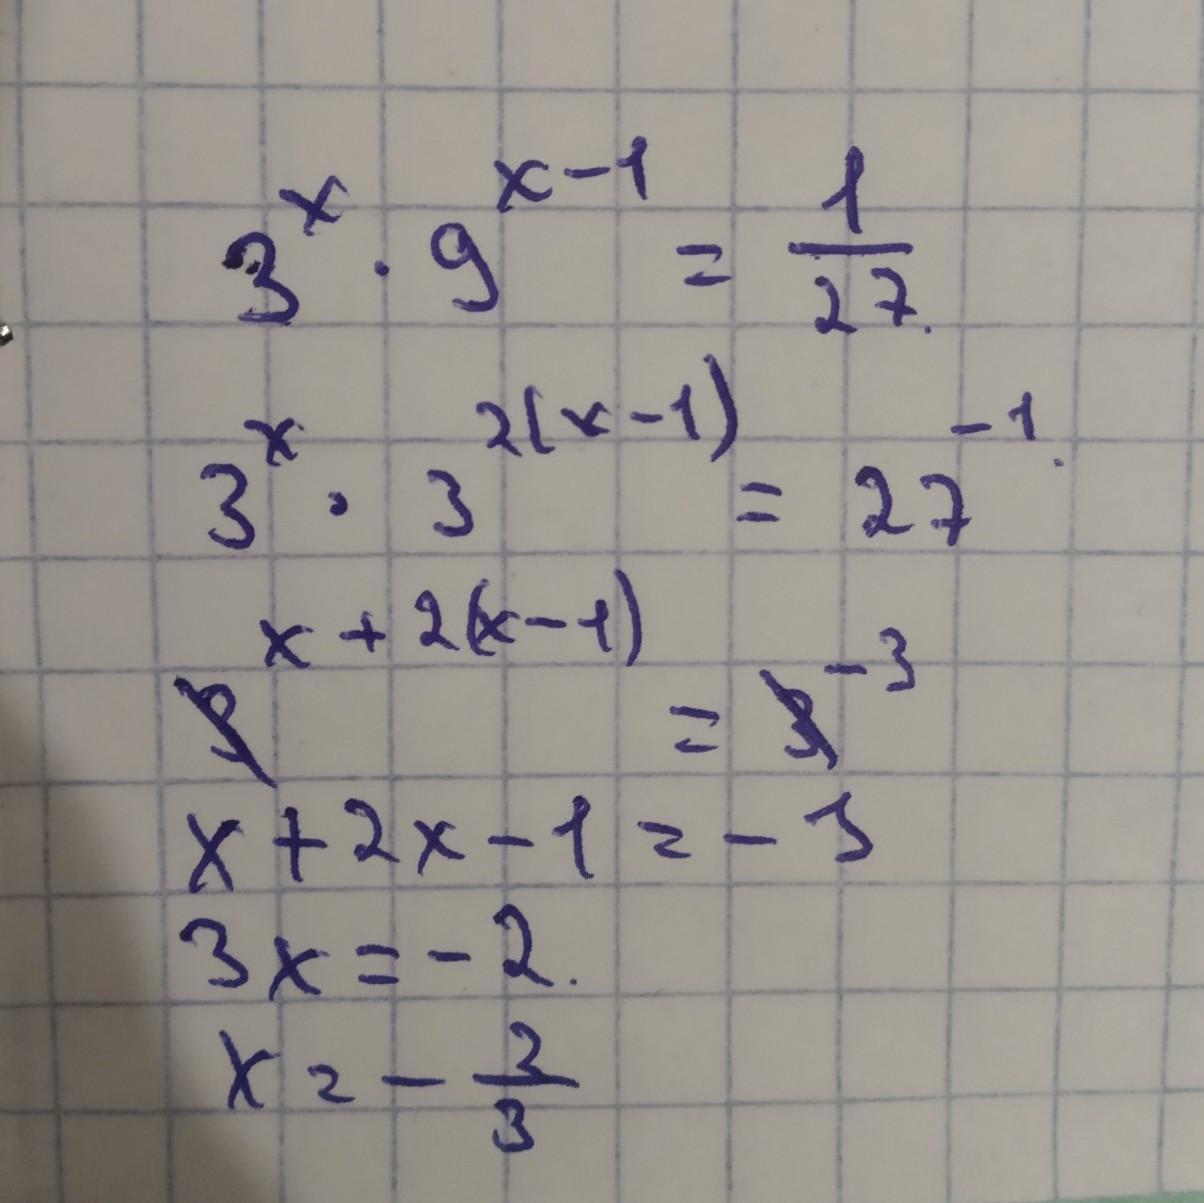 3^x · 9^(x-1) = 1/27.
3^x · 3^(2(x-1)) = 27^(-1).
3^(x+2(x-1)) = 3^(-3)
x + 2x - 1 = - 3
3x = - 2.
x = - 2/3